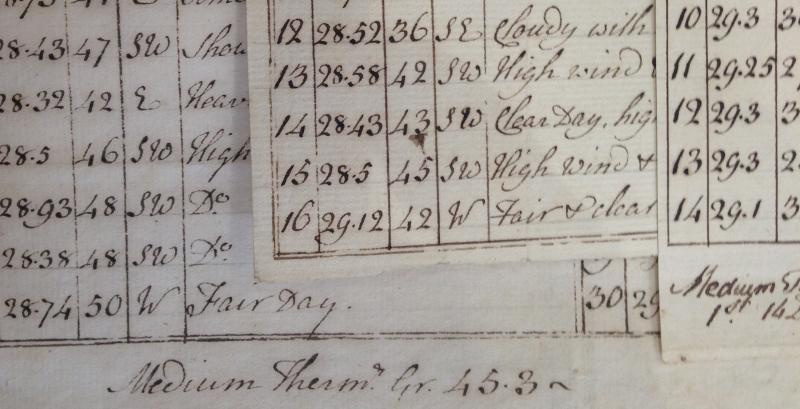 28.43 47 SW Show
28.32 42 E Heav
28.5 46 SW High
28.93 48 SW Do
28.38 48 SW Do
28.74 50 W Fair Day.
Medium Thermr. Gr. 45.3
12 28.52 36 SE Cloudy with
13 28.58 42 SW High wind
14 28.43 43 SW Clear Day, hig
15 28.5 45 SW High wind &
16 29.12 42 W Fair & clear
30 29
10 29.3
11 29.25
12 29.3
13 29.3
14 29.1
Medium
1st. 14